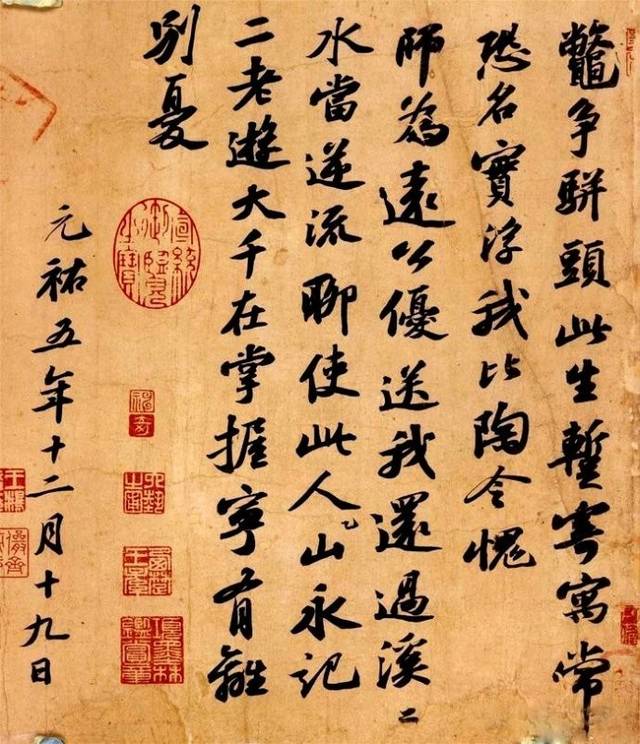 鼈争駢頭此生暫寄寓常
恐名實浮我比陶令愧
師為遠公優送我還過溪〻
水當逆流聊使此人山永記
二老遊大千在掌握寧有離
別憂
元祐五年十二月十九日
項墨林鑑賞章